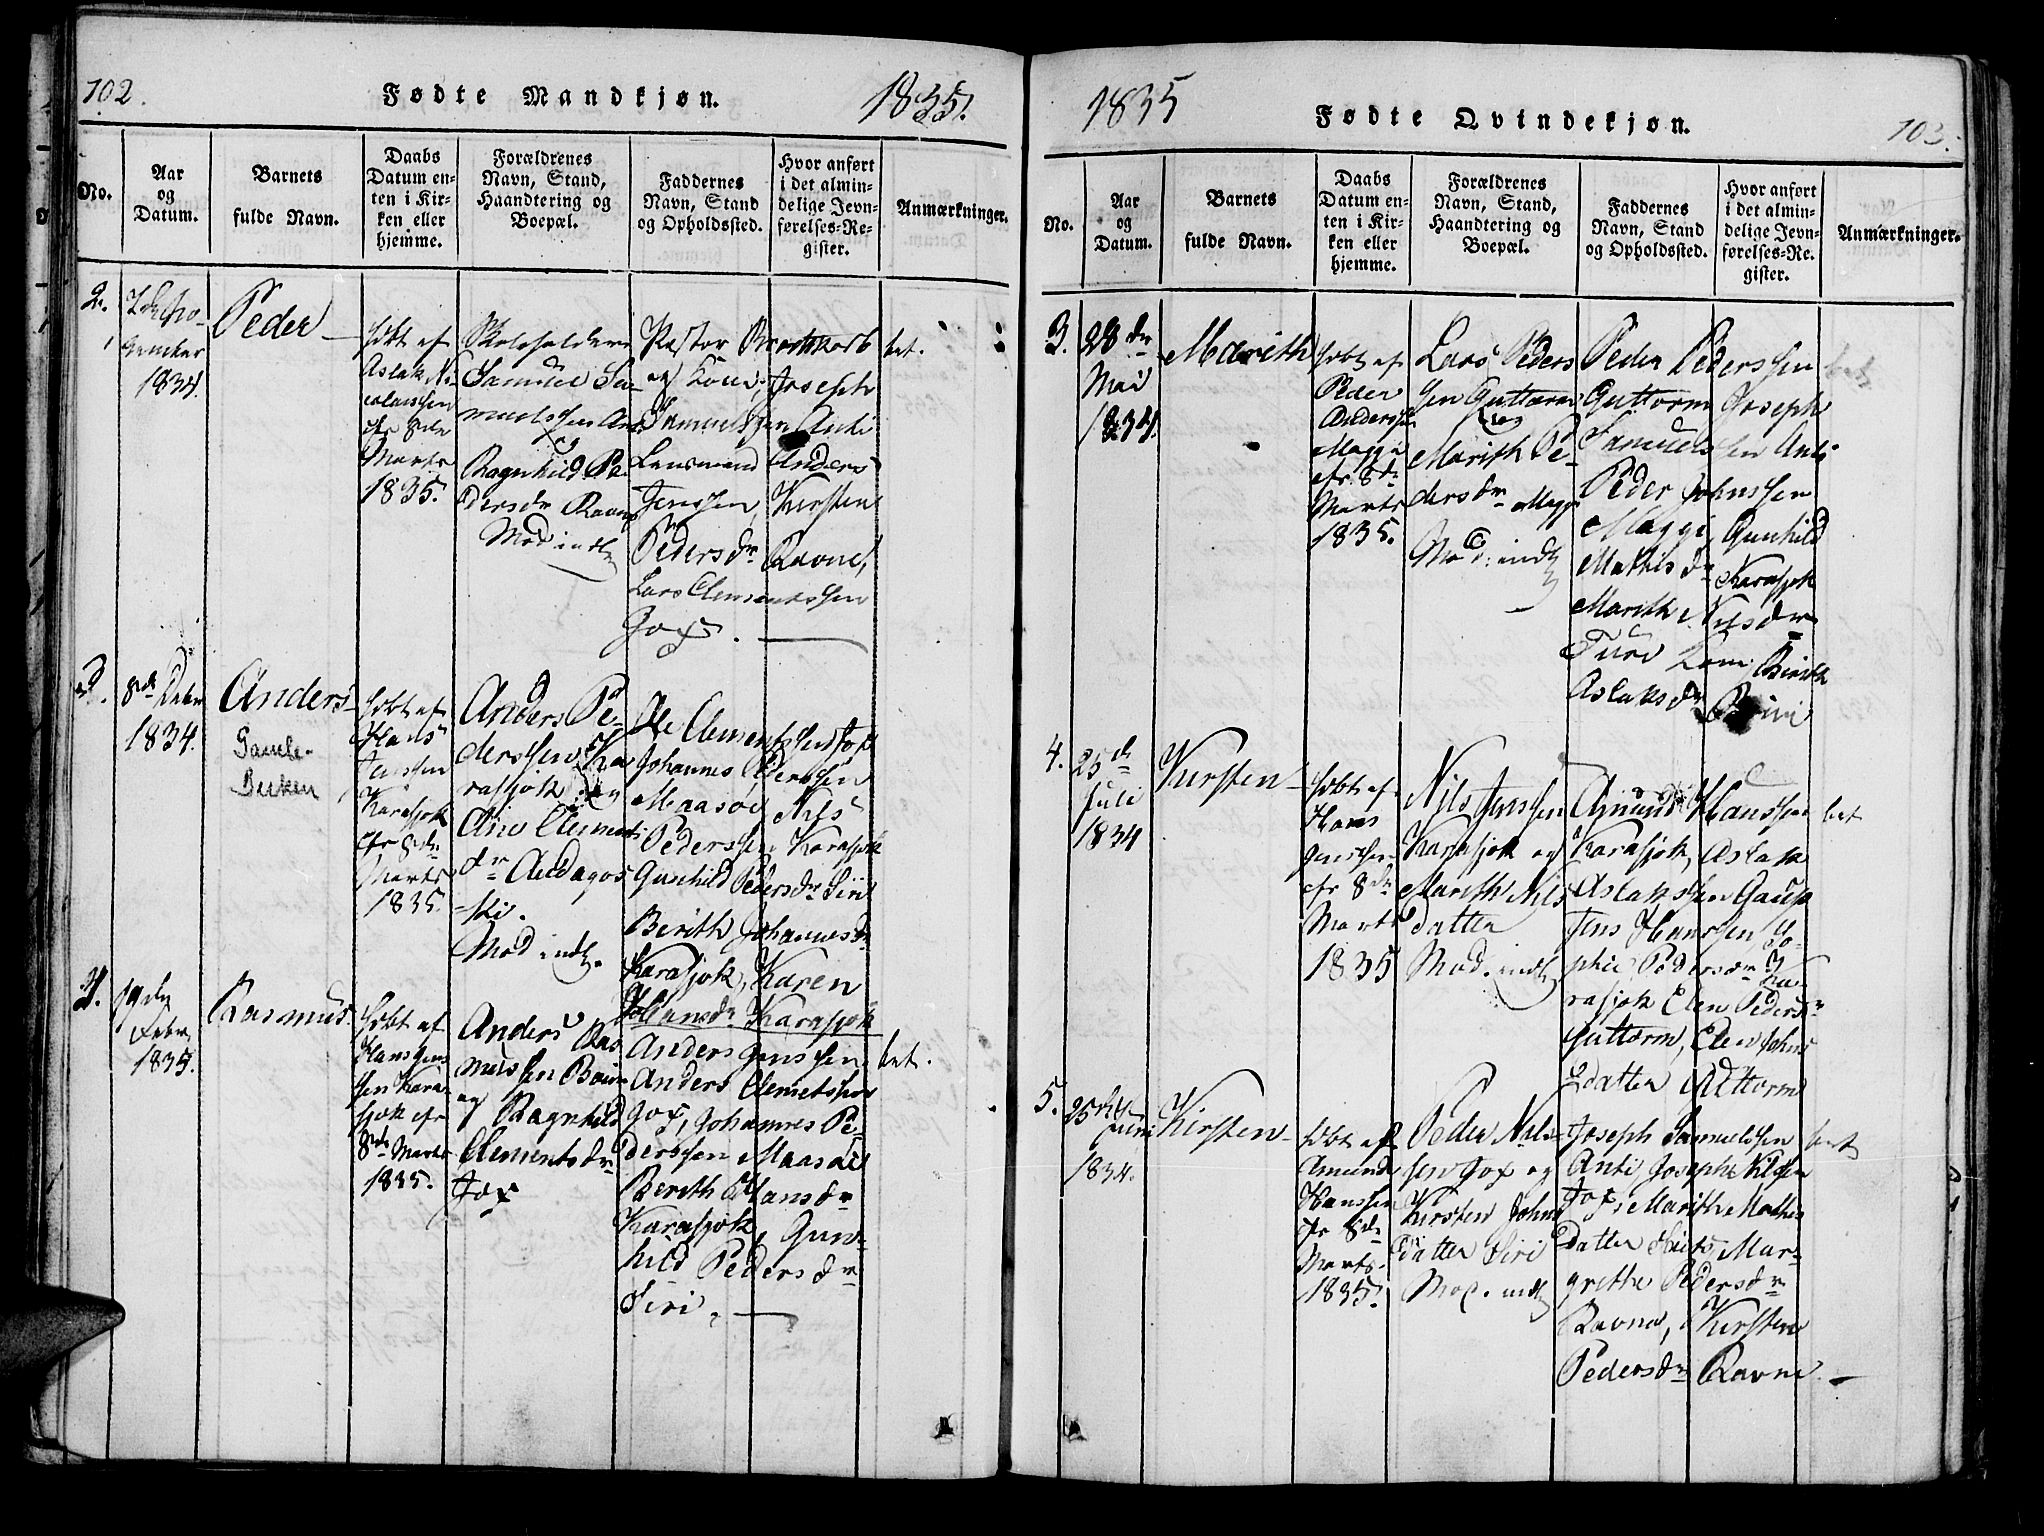 102.
Fødte Mandkjøn.
1835.
No.
Aar
og
Datum.
Barnets
fulde Navn.
Daabs
Datum en-
ten i Kir-
ken eller
hjemme.
Forældrenes
Navn, Stand,
Haandtering og
Boepæl.
Faddernes
Navn, Stand
og Opholdssted.
Hvor anført
i det almin-
delige Jevn-
førelses-Re-
gister.
Anmærkninger.
2.
1834.
Peder
døbt af
Aslak Ni-
colaissen
Marts
1835.
Skoleholder
Samuel Sa-
muelssen Anti
Ragnhild Pe-
dersdr Ravna
Mod indl
Pastor
og Kone, Joseph
Samuelssen Anti
Lensmand Anders
Jenssen, Kirsten
Pedersdr Ravna,
Lars Clementssen
Jox.
3.
8de Debr
1834.
Anders
Gamle-
Birken
døbt af
Hans
Jenssen
Karasjok
8de
Marts
1835.
Anders Pe-
derssen Ka
rasjok og
Ane Clements
dr Audagos
-ski.
Mod indl.
Ole Clementssen Jox
Johannes Perssen
Maasøe Nils
Pederssen Karasjok
Gunhild Pedersdr Siri
Berith Johannesdr
Karasjok, Karen
Hansdr Karasjok
4.
19de
Febr
1835.
Rasmus
døbt af
Hans Jens
sen Kara-
sjok
8de Marts
1835.
Anders Ras
mussen Boine
og Ragnhild
Clementsdr
Jox
Anders Jenssen,
Anders Clemetssen
Jox, Johannes Pe-
derssen Maasøe
Berith Hansdr
Karasjok, Gun-
hild Pedersdr
Siri.
1835
Fødte Qvindekjøn.
103.
No.
Aar
og
Datum.
Barnets
fulde Navn.
Daabs
Datum en-
ten i Kir-
ken eller
hjemme.
Forældrenes
Navn, Stand,
Haandtering og
Boepæl.
Faddernes
Navn, Stand
og Opholdssted.
Hvor anført
i det almin-
delige Jevn-
førelses-Re-
gister.
Anmærkninger.
3.
28de
Mai
1834.
Marith
døbt af
Peder
Anderssen
Maggi
8de
Marts
1835.
Lars Peders
sen Guttorm
og
Marith Pe-
dersdr Maggi
Mod: indl
Peder Pederssen
Guttorm Joseph
Samuelssen Anti
Peder Johnssen
Maggi, Gunhild
Mathisdr Karasjok
Marith Nilsdr
Turi Berith
Aslaksdr
4.
25de
Juli
1834
Kirsten
døbt af
Hans
Jenssen
8de
Marts
1835
Nils Jenssen
Karasjok og
Marith Nils
datter
Mod. indl
Amund Hanssen
Karasjok, Aslak
Aslakssen Gaup
Jens Hanssen So-
phie Pedersdr Ka-
rasjok Elen Pedersdr
Guttorm, Elen Johns
datter Guttorm
5.
25de
Juni
1834.
Kirsten
døbt af
Amund
Hanssen
8de
Marts
1835.
Peder Nils-
sen Jox og
Kirsten Johns
datter Siri
Mod. indl
Joseph Samuelssen
Anti, Josephe Nilssen
Jox, Marith Mathis
datter Mar-
grethe Pedersdr
Ravna, Kirsten
Pedersdr Ravna.